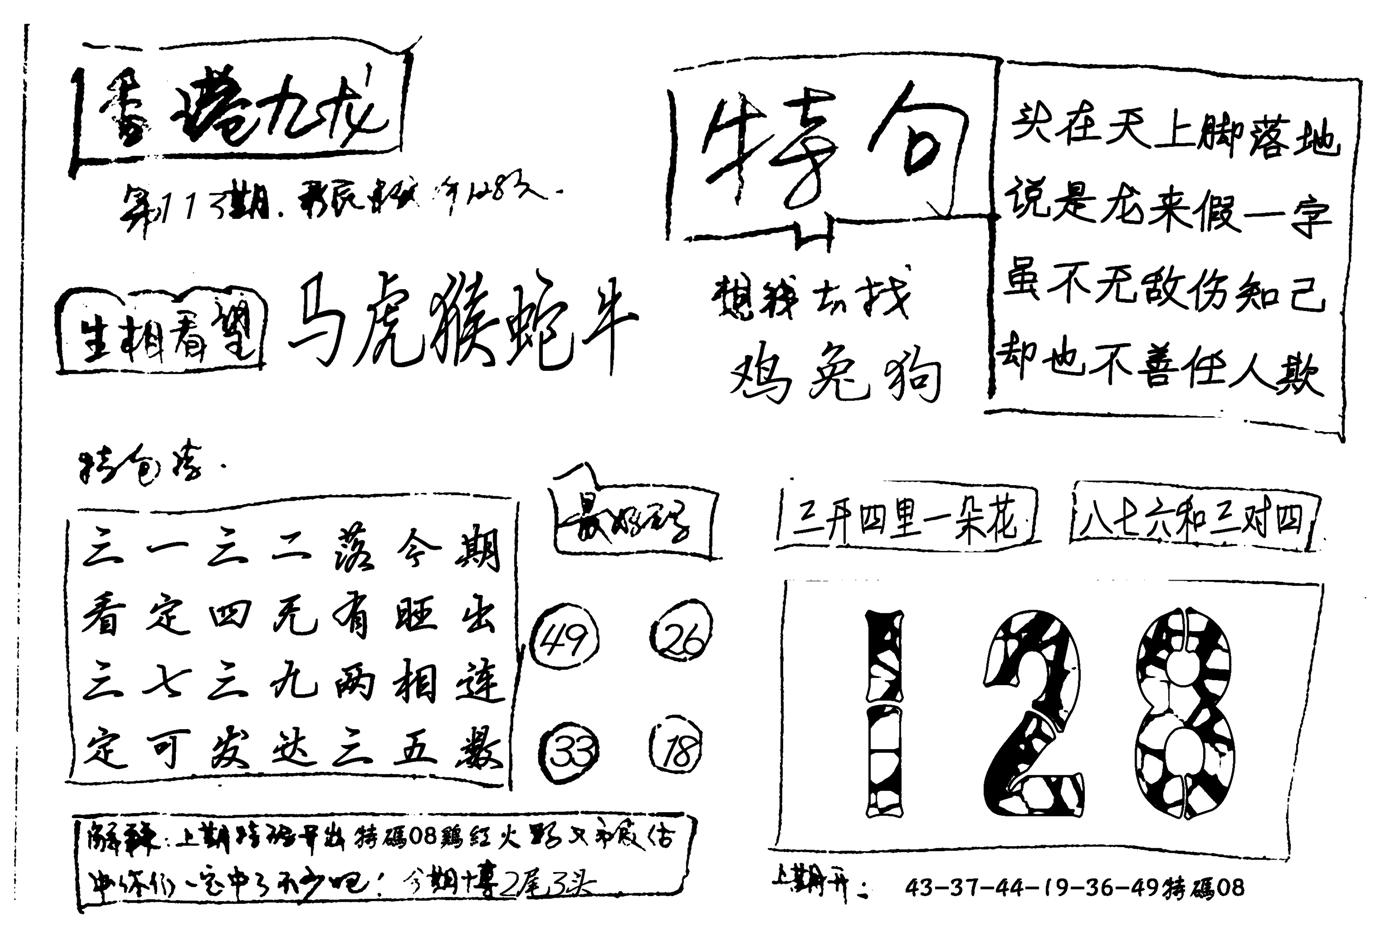 香港九龙
第113期.
生相看望
马虎猴蛇牛
特句
想钱去找
鸡兔狗
头在天上脚落地
说是龙来假一字
虽不无敌伤知己
却也不善任人欺
三一三二落今期
看定四无有旺出
三七三九两相连
定可发达三五数
49 26
33 18
三开四里一朵花
八七六和三对四
128
解释:上期特码开出特碼08鷄红火
中你们一定中了不少吧!今期博2尾3头
上期开:43-37-44-19-36-49特碼08